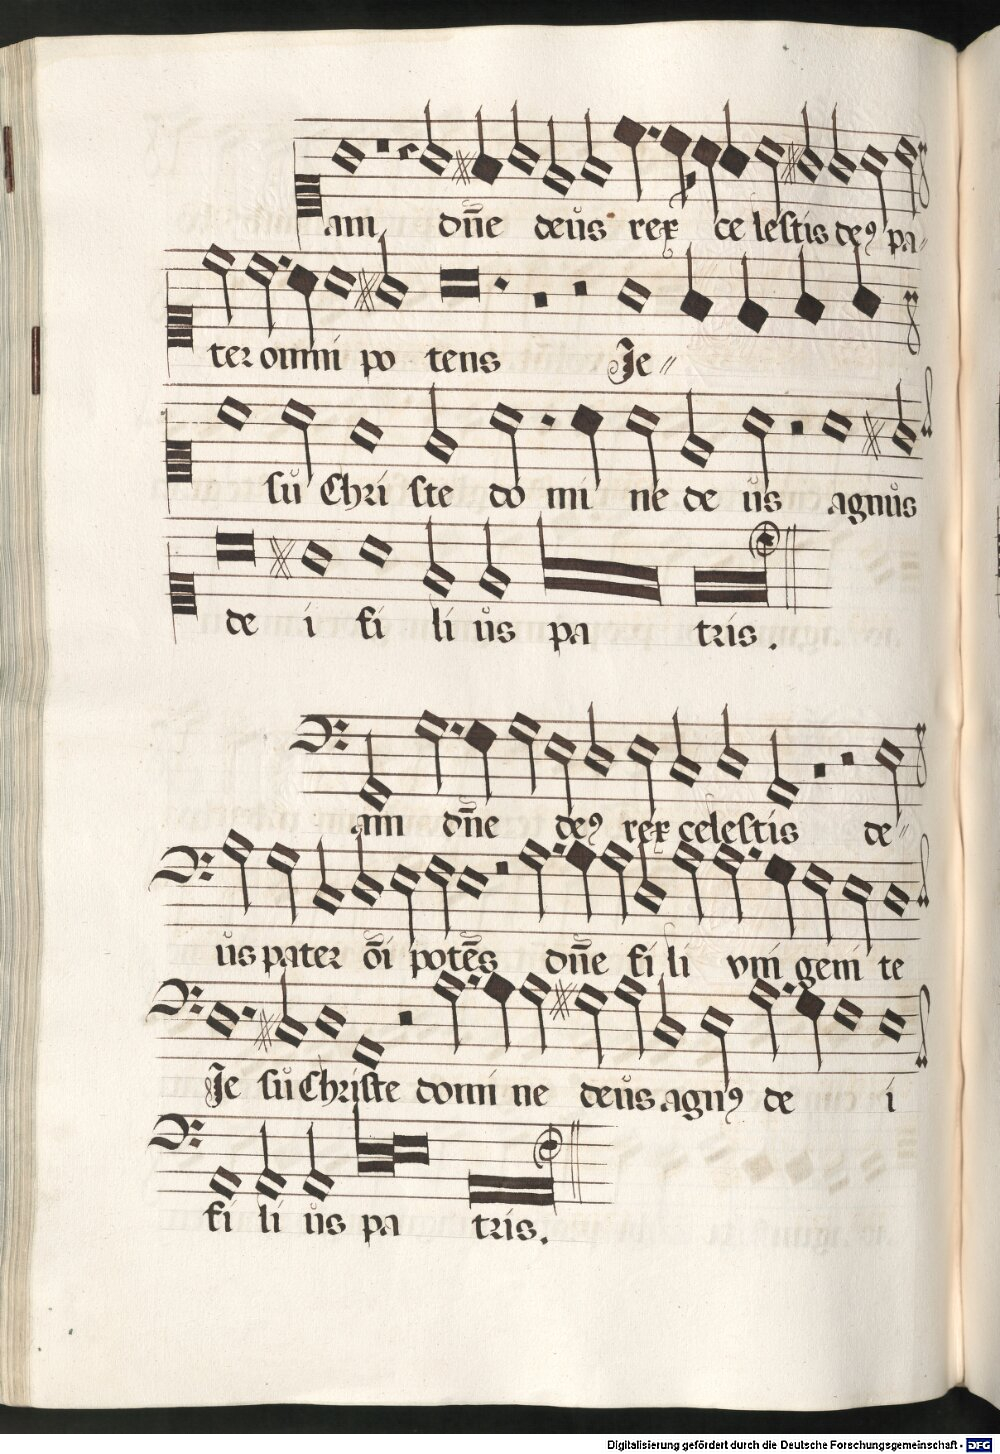 am dn̄e deůs rex ce lestis de9 pa
ter omni po tens Je
sů Chri ste do mi ne de ůs agnůs
de i fi li ůs pa tris.
am dn̄e de9 rex celestis de
ůs pater o̅i pote̅s dn̄e fi li vni geni te
Je sů Christe domi ne deůs agn9 de i
fi li ůs pa tris.
Digitalisierung gefördert durch die Deutsche Forschungsgemeinschaft - DFG